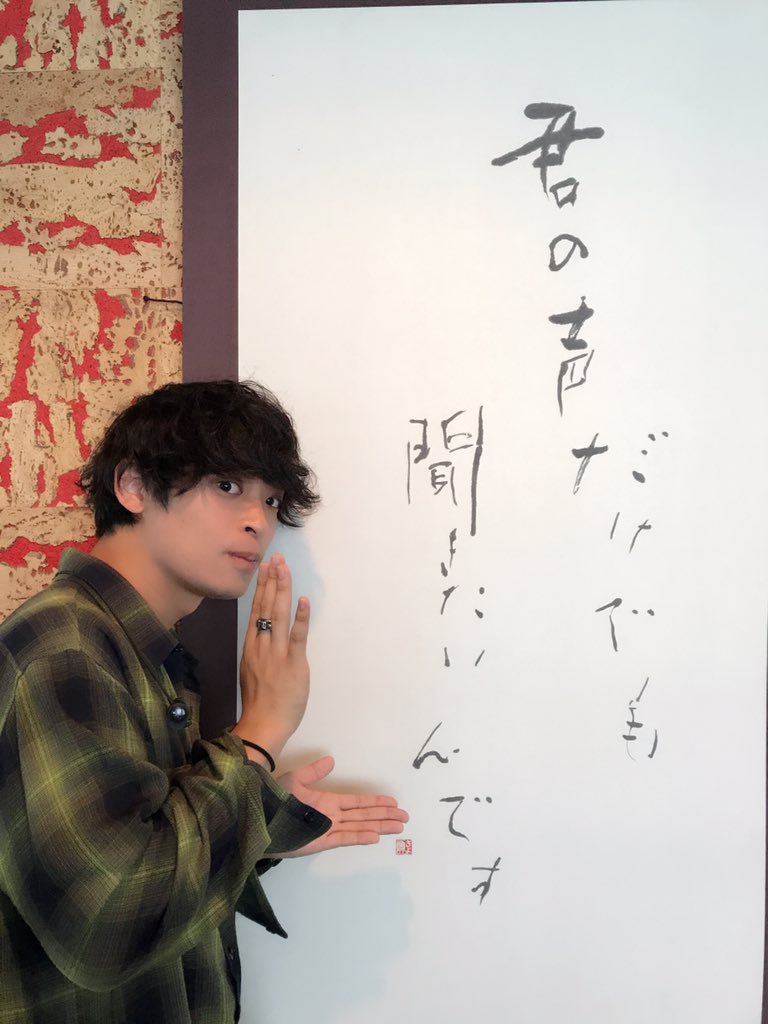 君の声だけでも
聞きたいんです